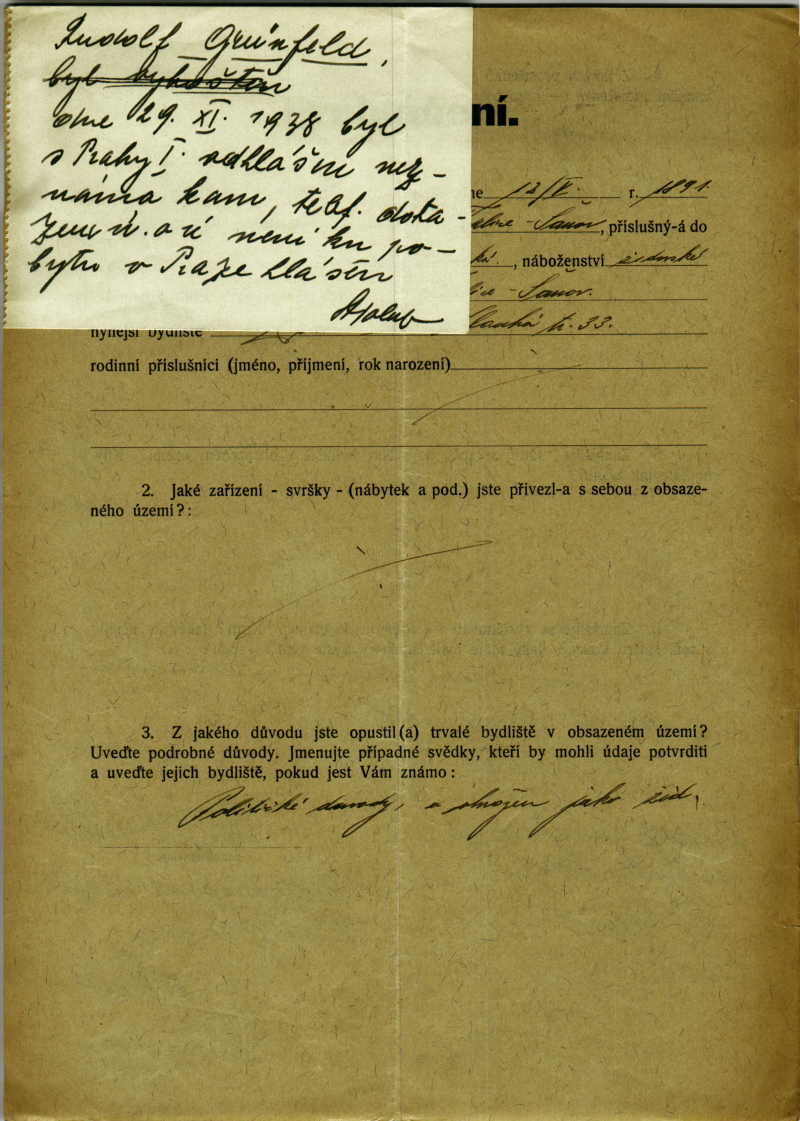 Rudolf Grünfeld,
byl vyhoštěn
dne 29. XI. 1938 byl
s Prahy I. odhlášen nez-
námo kam, telef. dota-
zem ú. a ú není ku po-
bytu v Praze hlášen
Holub
ní.
ne 12/V. r. 1891.
-Šanov, příslušný-á do
ké., náboženství židovské
ice-Šanov.
nynější bydliště Dlouhá tř. 33.
rodinní příslušníci (jméno, příjmení, rok narození)
2. Jaké zařízení - svršky - (nábytek a pod.) jste přivezl-a s sebou z obsaze-
ného území?:
3. Z jakého důvodu jste opustil(a) trvalé bydliště v obsazeném území?
Uveďte podrobné důvody. Jmenujte případné svědky, kteří by mohli údaje potvrditi
a uveďte jejich bydliště, pokud jest Vám známo:
Politické důvody, a ohrožen jako žid.